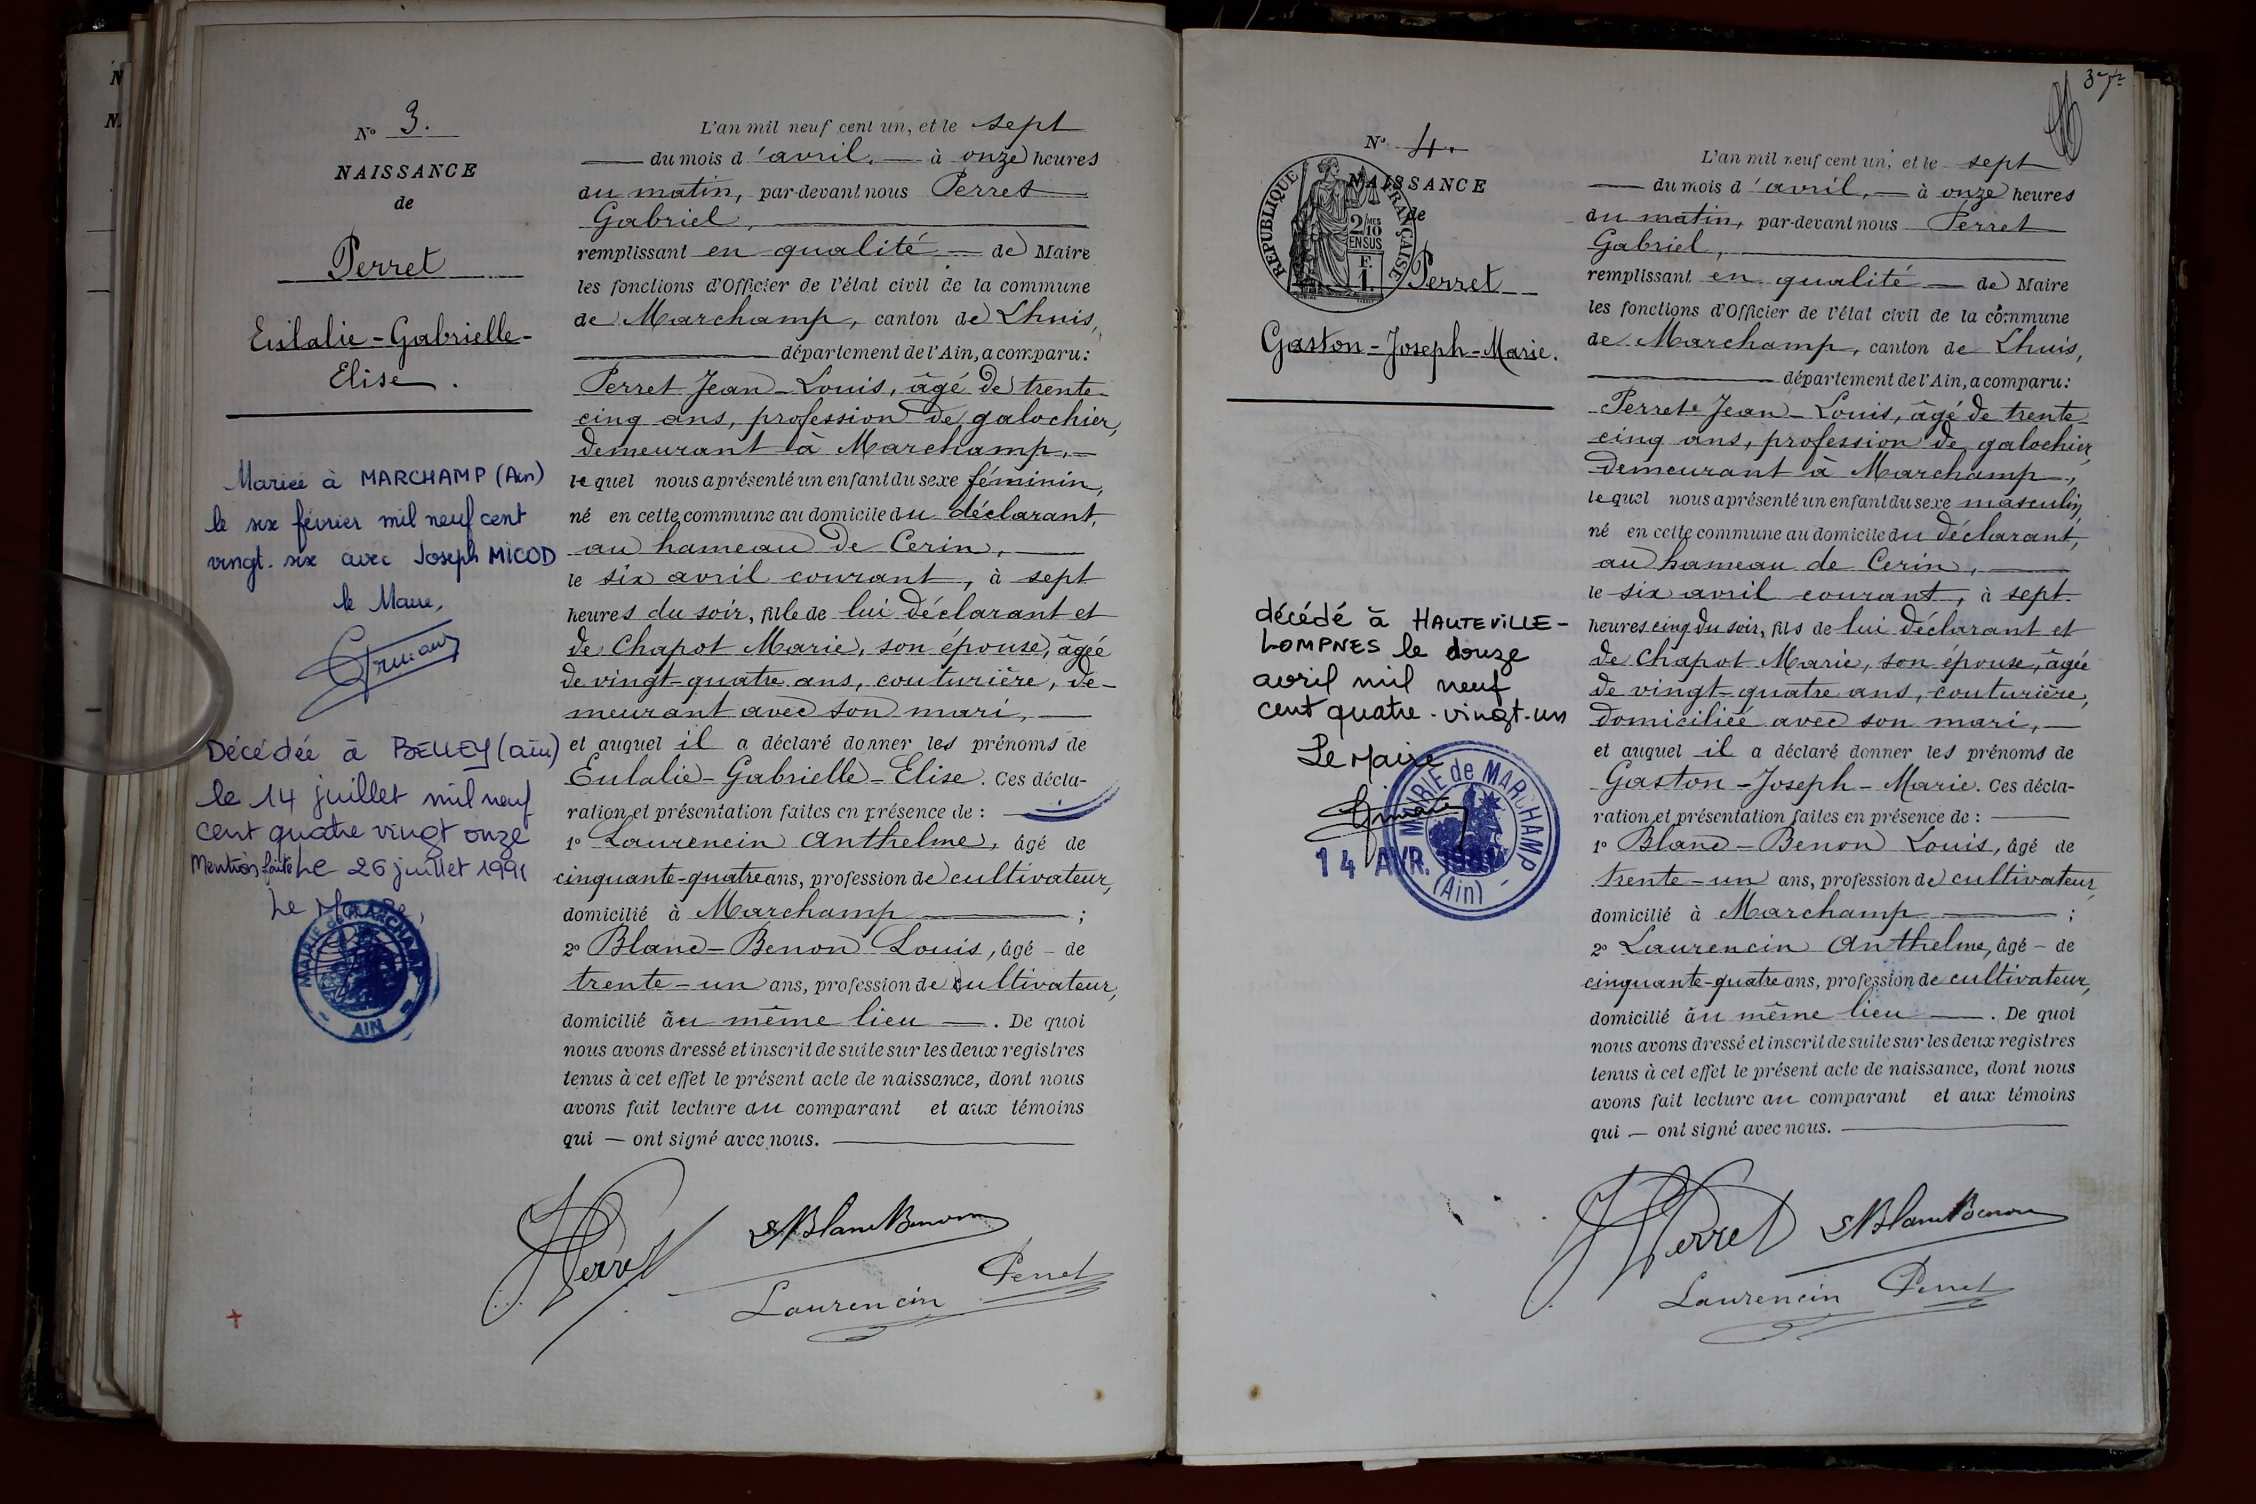 N° 3.
NAISSANCE
de
Perret
Eulalie-Gabrielle-
Elise.
Mariée à MARCHAMP (Ain)
le six février mil neuf cent
vingt-six avec Joseph MICOD
le Maire,
Décédée à BELLEY (ain)
le 14 juillet mil neuf
cent quatre vingt onze
Mention faite Le 26 juillet 1991
Le Maire,
MAIRIE de MARCHAMP
- AIN -
L'an mil neuf cent un, et le sept
du mois d'avril, à onze heures
du matin, par-devant nous Perret
Gabriel,
remplissant en qualité de Maire
les fonctions d'Officier de l'état civil de la commune
de Marchamp, canton de Lhuis,
département de l'Ain, a comparu:
Perret Jean-Louis, âgé de trente-
cinq ans, profession de galochier,
demeurant à Marchamp,
lequel nous a présenté un enfant du sexe féminin,
né en cette commune au domicile du déclarant,
au hameau de Cerin,
le six avril courant, à sept
heures du soir, fille de lui déclarant et
de Chapot Marie, son épouse, âgée
de vingt-quatre ans, couturière, de-
meurant avec son mari,
et auquel il a déclaré donner les prénoms de
Eulalie-Gabrielle-Elise. Ces décla-
ration et présentation faites en présence de :
1° Laurencin Anthelme, âgé de
cinquante-quatre ans, profession de cultivateur,
domicilié à Marchamp ;
2° Blanc-Benon Louis, âgé - de
trente-un ans, profession de cultivateur,
domicilié au même lieu. De quoi
nous avons dressé et inscrit de suite sur les deux registres
tenus à cet effet le présent acte de naissance, dont nous
avons fait lecture au comparant et aux témoins
qui — ont signé avec nous.
JPerret
Blanc Benon
Laurencin
Perret
37
N° 4.
NAISSANCE
de
RÉPUBLIQUE FRANÇAISE
2/10 EN SUS
F. 1.
Perret
Gaston-Joseph-Marie.
décédé à HAUTEVILLE-
LOMPNES le douze
avril mil neuf
cent quatre-vingt-un
Le Maire
MAIRIE de MARCHAMP
(Ain)
14 AVR. 1981
L'an mil neuf cent un, et le sept
du mois d'avril, à onze heures
du matin, par-devant nous Perret
Gabriel,
remplissant en qualité de Maire
les fonctions d'Officier de l'état civil de la commune
de Marchamp, canton de Lhuis,
département de l'Ain, a comparu:
Perret Jean-Louis, âgé de trente-
cinq ans, profession de galochier,
demeurant à Marchamp,
lequel nous a présenté un enfant du sexe masculin,
né en cette commune au domicile du déclarant,
au hameau de Cerin,
le six avril courant, à sept
heures cinq du soir, fils de lui déclarant et
de Chapot Marie, son épouse, âgée
de vingt-quatre ans, couturière,
domiciliée avec son mari,
et auquel il a déclaré donner les prénoms de
Gaston-Joseph-Marie. Ces décla-
ration et présentation faites en présence de :
1° Blanc-Benon Louis, âgé de
trente-un ans, profession de cultivateur,
domicilié à Marchamp ;
2° Laurencin Anthelme, âgé - de
cinquante-quatre ans, profession de cultivateur,
domicilié au même lieu. De quoi
nous avons dressé et inscrit de suite sur les deux registres
tenus à cet effet le présent acte de naissance, dont nous
avons fait lecture au comparant et aux témoins
qui — ont signé avec nous.
JPerret
Blanc Benon
Laurencin
Perret